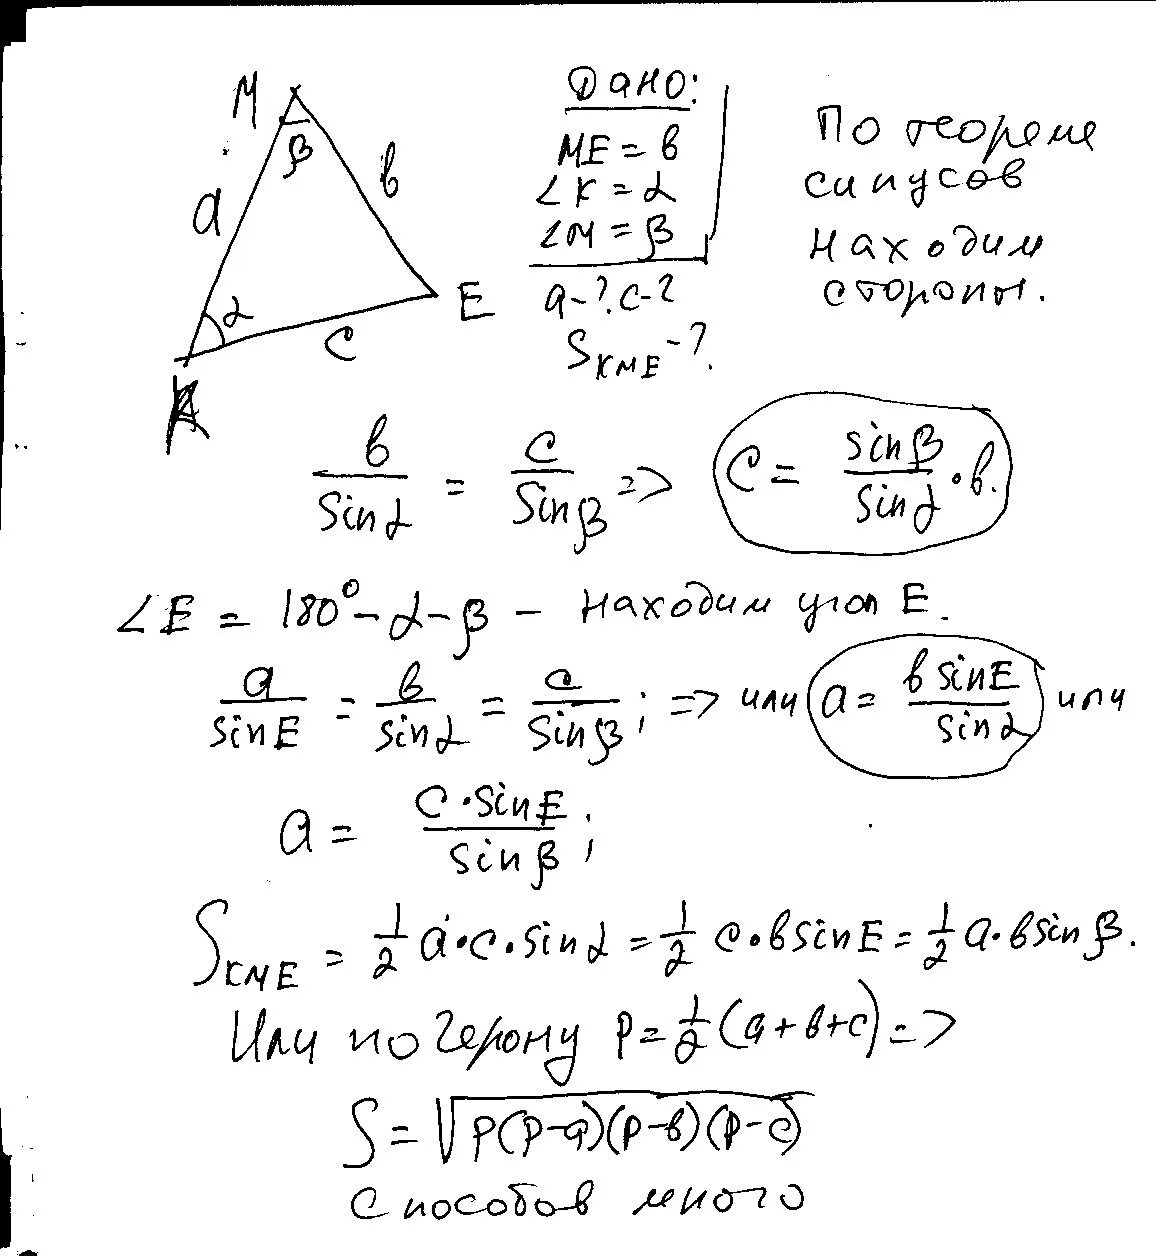 M
β
a
в
α
c
E
K
Дано:
ME = в
∠K = α
∠M = β
a-? c-?
S_KME-?
По теореме
синусов
находим
стороны.
в/sinα = c/sinβ => c = sinβ/sinα · в.
∠E = 180° - α - β - находим угол E.
a/sinE = в/sinα = c/sinβ; => или a = в sinE/sinα или
a = c·sinE/sinβ;
S_KME = 1/2 a·c·sinα = 1/2 c·в sinE = 1/2 a·в sinβ.
Или по Герону p = 1/2 (a+в+c) =>
S = √p(p-a)(p-в)(p-c)
способов много